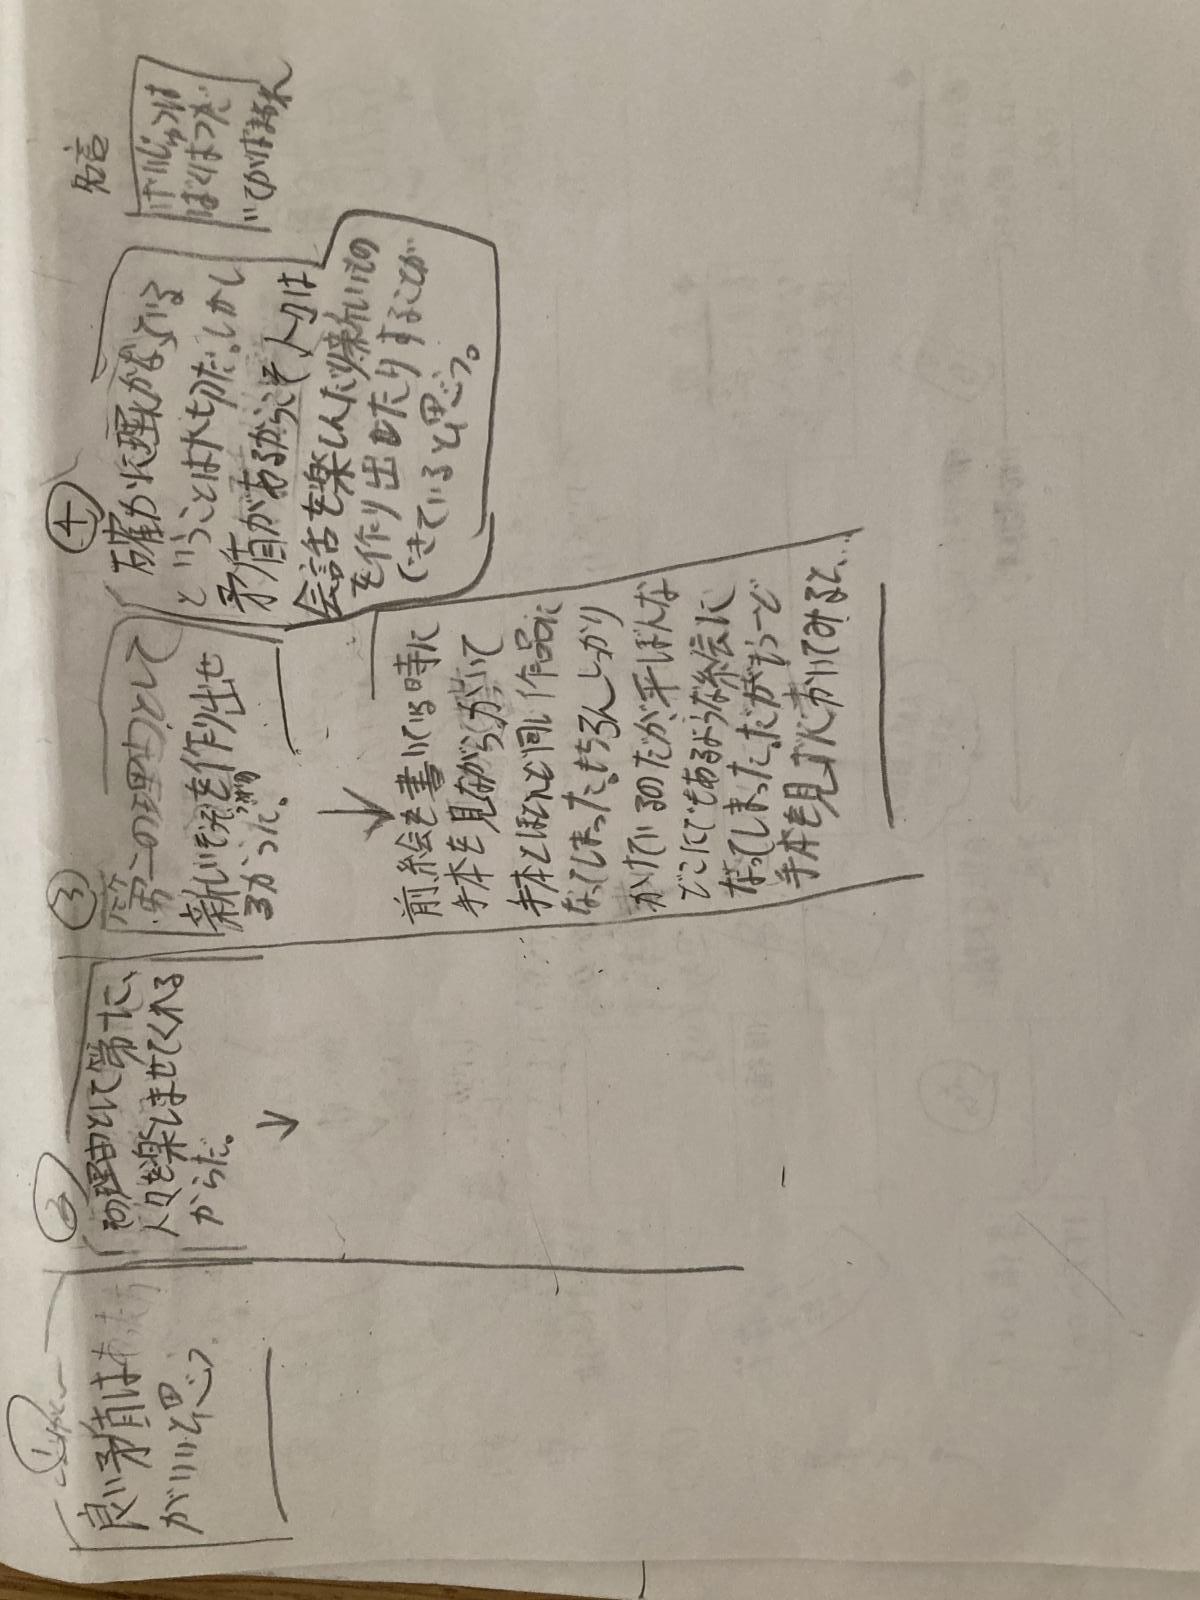 ①
良い矛盾はあった方
がいいと思う
②
その理由として第一に、
人々を楽しませてくれる
からだ。
↓
③
第二の理由として
新しいを作り出せ
るからだ。
↓
前絵を書いている時に
手本を見ながらかいて
手本とほとんど同じ作品に
なってしまった。もちろんしっかり
かけているのだが、平ぼんな
どこにでもあるような絵に
なってしまった。だがもう一ど
手本を見ずにかいてみると…
④
確かに理にかなっている
ということは大切だ。しかし
矛盾があるからこそ人々は
会話を楽しんだり新しいもの
を作り出したりすることが
できていると思う。
名言
げいじゅつは
ばくはつだ